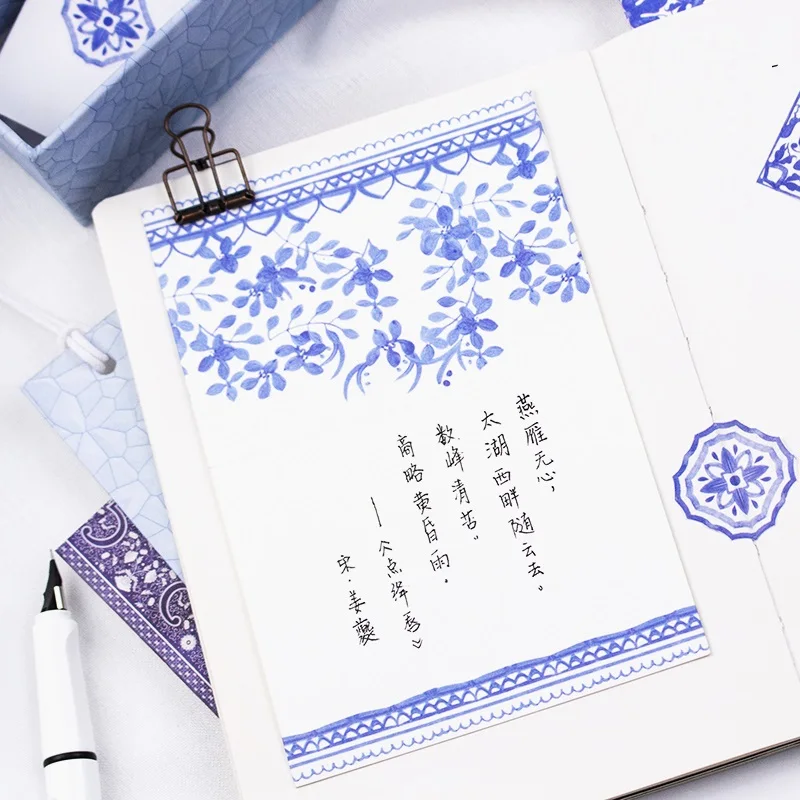 燕雁无心,
太湖西畔随云去。
数峰清苦。
商略黄昏雨。
—《点绛唇》
宋·姜夔